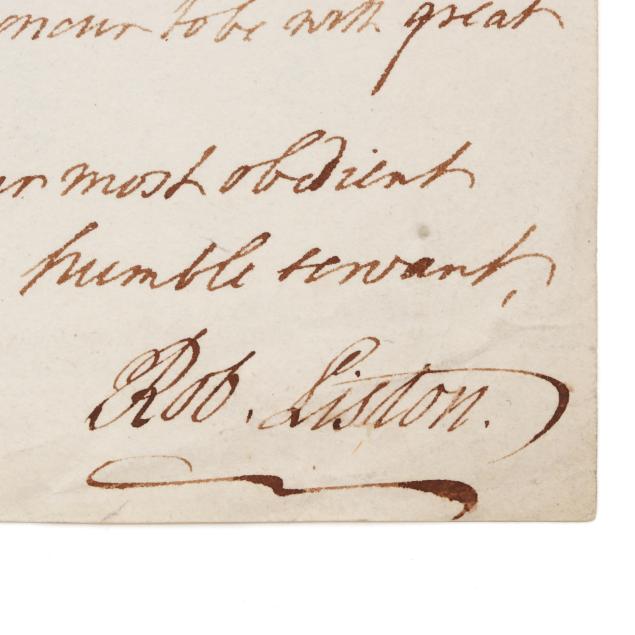 oncur to be with great
ur most obedient
humble servant,
Rob. Liston.